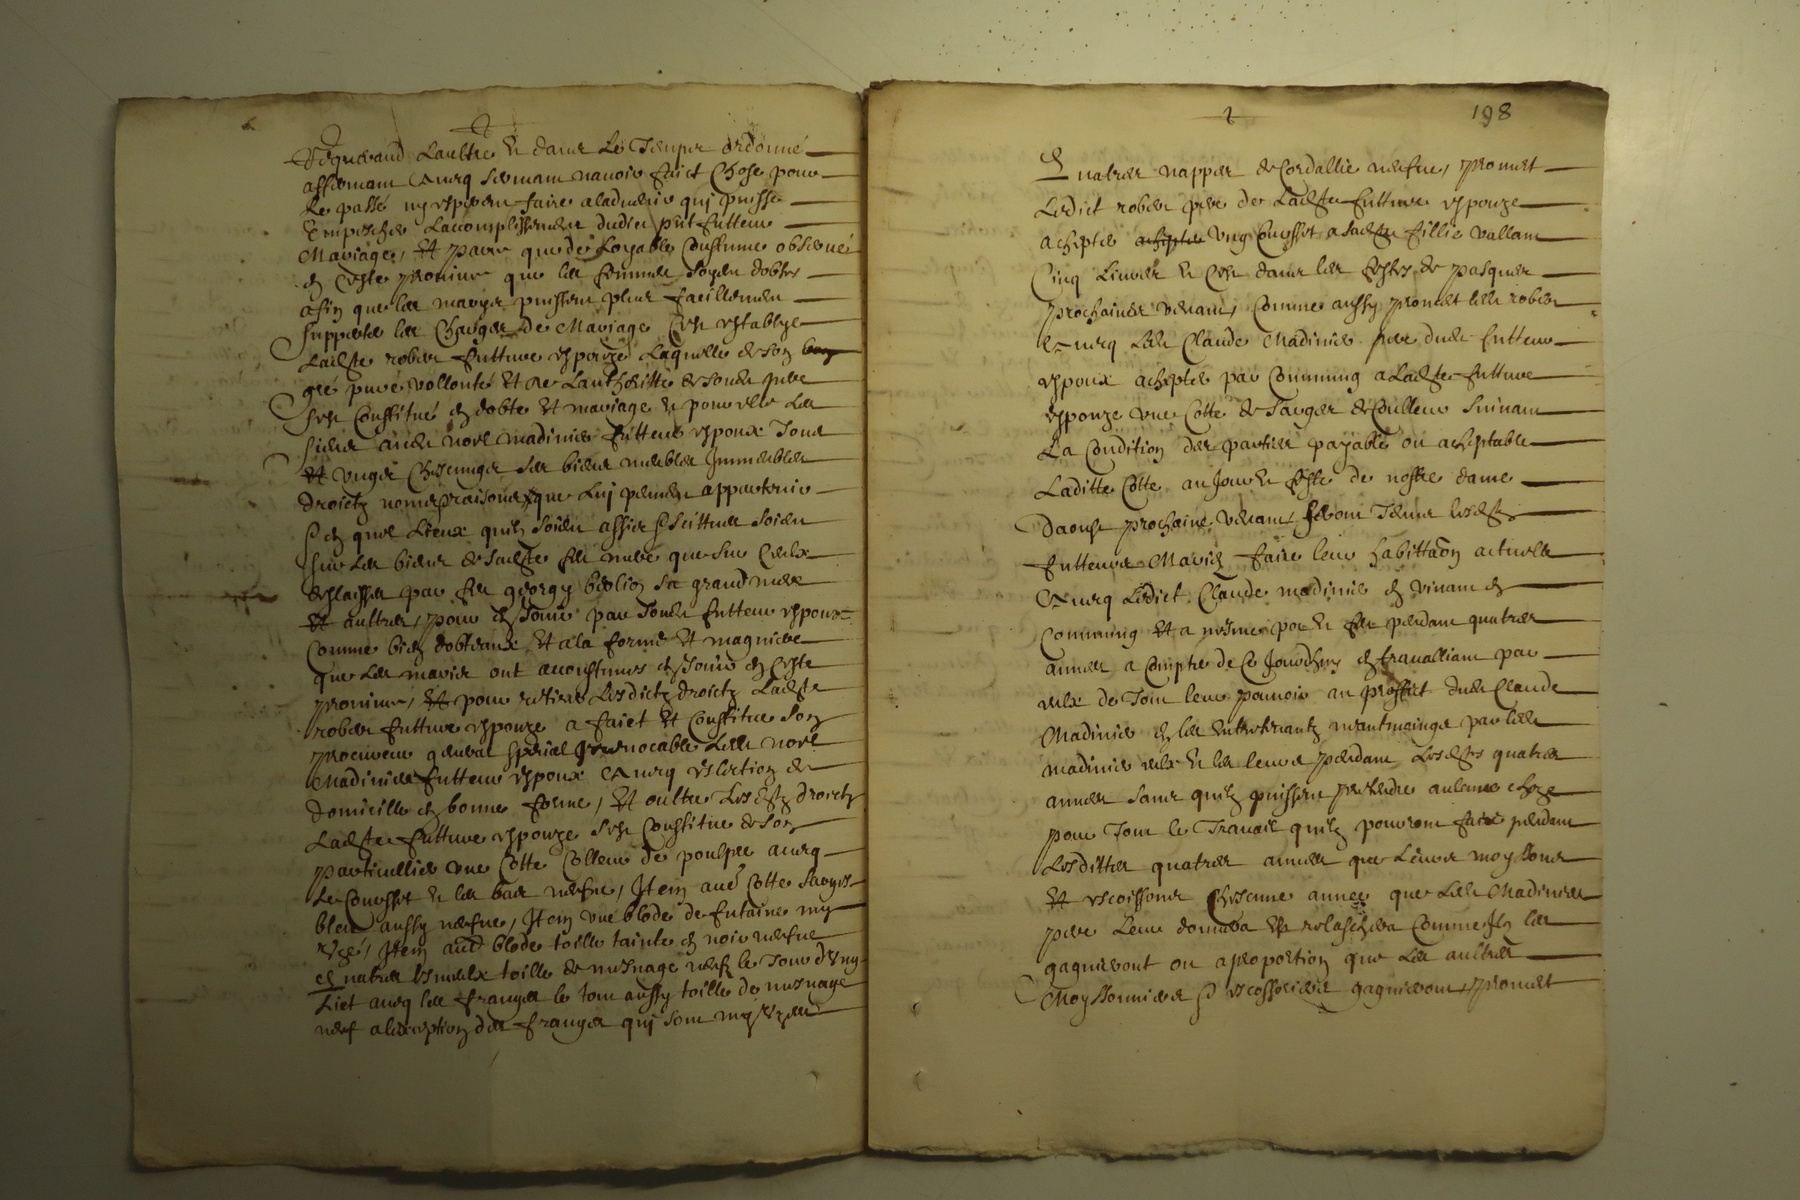 Requerand laultre et dans le temps ordonné
affirmant avecq serment navoir faict chose pour
le passé ny esperer faire aladvenir qui puisse
empescher laccomplissement dudict pnt futteur
Mariage, Et parce que de loyable coustume observée
en ceste province que les femmes soyent dobtes
afin que les marys puissent plus facillement
supporter les charges de Mariage Cest establye
Ladicte robert futture espouze laquelle de son
gre pure vollonté et de lauthoritté de sondit pere
sest constitué en dobte et mariage et pour elle
audit noel madinier futteur espoux Tous
Et ungs chescungs ses biens meubles Immeubles
droictz noms raisons que luy peuvent appartenir
en quel lieux quilz soient assis et scittues soient
sur les biens de sadicte feu mere que sur ceulx
delaissés par feu sa grand mere
Et aultres, pour en Jouir par sondit futteur espoux
comme biens dobteaux Et ala forme Et magniere
que les maris ont accoustumes en Jouir en ceste
province, Et pour retirer lesdictz droictz Ladicte
robert futture espouze a faict Et constitue son
procureur general special Irrevocable ledit noel
Madinier futteur espoux avecq eslection de
domicille en bonne forme, Et oultre lesdictz droictz
Ladicte futture espouze sest constitue de son
particullier une cotte colleur de poulpre avecq
le corsset et les bas neufve, Item une cotte
bleu aussy neufve, Item une blode de futaine my
uzé, Item une blode toille tainte en noir neufve
quatres linceulx toille de mesnage neufz le tour dung
Liet avecq les franges le tout aussy toille de mesnage
neuf alexception des franges qui sont my uzées
198
Quatres nappes de cordallie neufve, promet
Ledict robert pere de Ladicte futture espouze
achepter ung corsset a sadicte fillie vallant
Cinq Livres et cest dans les festes de pasques
prochaines venant, comme aussy promet ledit robert
avecq ledit Claude Madinier pere dudit futteur
espoux achepter par commung a Ladicte futture
espouze une cotte de sarges de culleur suivant
La condition des parties payable ou acheptable
Laditte cotte au Jour et feste de nostre dame
daoust prochaine venant, feront Tenus lesdictz
futteurs Mariez faire leur habittaon actuelle
avecq Ledict Claude madinier en vivant en
commung Et a mesme pot et feu pendant quatres
annees a compter de ce Jourdhuy en travalliant par
eulx de Tout leur pouvoir au proffict dudit Claude
Madinier en les entretenantz neantmoings par ledit
madinier eulx et les leurs pendant lesdictes quatres
annees sans quilz puissent pretendre aulcune chose
pour Tout le Travail quilz pourront faire pendant
Lesdittes quatres annees que leurs moyssons
Et escoissons chescune annee que ledit Madinier
pere leur donnera Et relaschera comme Ilz les
gagneront ou a proportion que les aultres
Moyssonniers et escossiers gagneront, promet